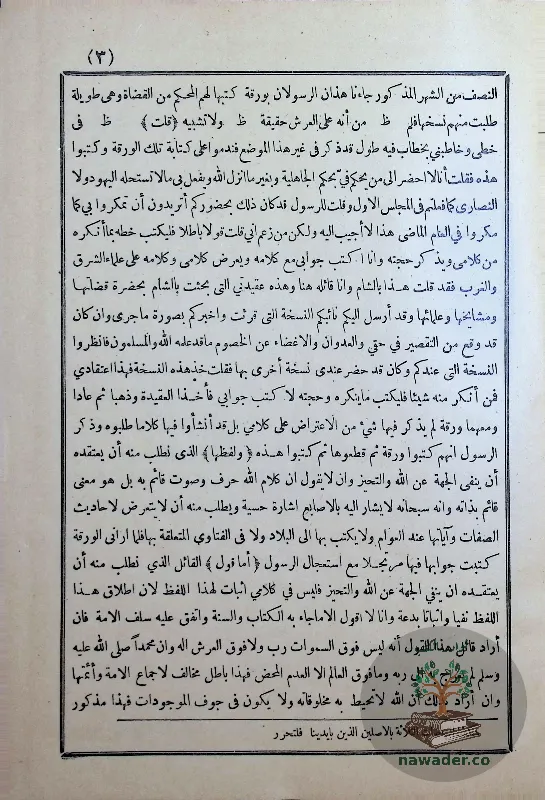 (٣)
النصف من الشهر المذكور جاءنا هذان الرسولان بورقة كتبها لهم المحكم من القضاة وهى طويلة
طلبت منهم نسختها فلم ظ من أنه على العرش حقيقة ظ ولا تشبيه ﴿قلت﴾ ظ فى
خطى وخاطبنى بخطاب فيه طول قد ذكر فى غير هذا الموضع فندموا على كتابة تلك الورقة وكتبوا
هذه فقلت أنا لا احضر الى من يحكم فىّ بحكم الجاهلية وبغير ما انزل الله ويفعل بى مالا تستحله اليهود ولا
النصارى كما فعلتم فى المجلس الاول وقلت للرسول قد كان ذلك بحضوركم أتريدون أن تمكروا بى كما
مكروا فى العام الماضى هذا لا أجيب اليه ولكن من زعم انى قلت قولا باطلا فليكتب خطه بما أنكره
من كلامى ويذكر حجته وانا أكتب جوابى مع كلامه ويعرض كلامى وكلامه على علماء الشرق
والغرب فقد قلت هذا بالشام وانا قائله هنا وهذه عقيدتى التى بحثت بالشام بحضرة قضاتها
ومشايخها وعلمائها وقد أرسل اليكم نائبكم النسخة التى قرئت واخبركم بصورة ما جرى وان كان
قد وقع من التقصير فى حقى والعدوان والاغضاء عن الخصوم ما قد علمه الله والمسلمون فانظروا
النسخة التى عندكم وكان قد حضر عندى نسخة أخرى بها فقلت خذ هذه النسخة فهذا اعتقادى
فمن أنكر منه شيئا فليكتب ما ينكره وحجته لا كتب جوابى فأخذا العقيدة وذهبا ثم عادا
ومعهما ورقة لم يذكر فيها شئ من الاعتراض على كلامى بل قد أنشأوا فيها كلاما طلبوه وذكر
الرسول انهم كتبوا ورقة ثم قطعوها ثم كتبوا هذه ﴿ولفظها﴾ الذى نطلب منه أن يعتقده
أن ينفى الجهة عن الله والتحيز وان لا يقول ان كلام الله حرف وصوت قائم به بل هو معنى
قائم بذاته وانه سبحانه لا يشار اليه بالاصابع اشارة حسية ويطلب منه أن لا يتعرض لاحاديث
الصفات وآياتها عند العوام ولا يكتب بها الى البلاد ولا فى الفتاوى المتعلقة بها فلما أرانى الورقة
كتبت جوابها فيها مرتجلا مع استعجال الرسول ﴿أما قول﴾ القائل الذى نطلب منه أن
يعتقده ان ينفى الجهة عن الله والتحيز فليس فى كلامى اثبات لهذا اللفظ لان اطلاق هذا
اللفظ نفيا واثباتا بدعة وانا لا اقول الا ما جاء به الكتاب والسنة واتفق عليه سلف الامة فان
أراد قائل هذا القول أنه ليس فوق السموات رب ولا فوق العرش اله وان محمداً صلى الله عليه
وسلم لم يعرج به الى ربه وما فوق العالم الا العدم المحض فهذا باطل مخالف لاجماع الامة وأئمتها
وان أراد بذلك أن الله لا تحيط به مخلوقاته ولا يكون فى جوف الموجودات فهذا مذكور
بالاصلين الذين بايدينا فلتحرر
nawader.co